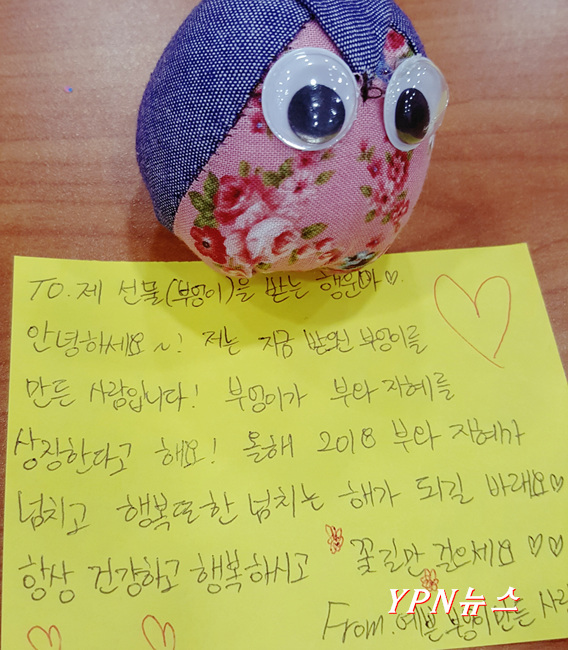 TO. 제 선물(부엉이)을 받는 행운아♡.
안녕하세요~! 저는 지금 받으신 부엉이를
만든 사람입니다! 부엉이가 부와 지혜를
상징한다고 해요! 올해 2018 부와 지혜가
넘치고 행복또한 넘치는 해가 되길 바래요♡
항상 건강하고 행복하시고 꽃길만 걸으세요♡♡
YPN뉴스
From. 예쁜 부엉이 만든 사람